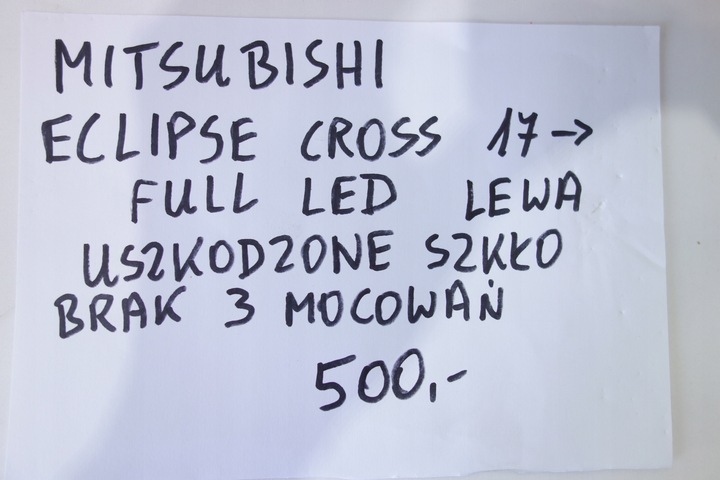 MITSUBISHI
ECLIPSE CROSS 17->
FULL LED LEWA
USZKODZONE SZKŁO
BRAK 3 MOCOWAŃ
500,-